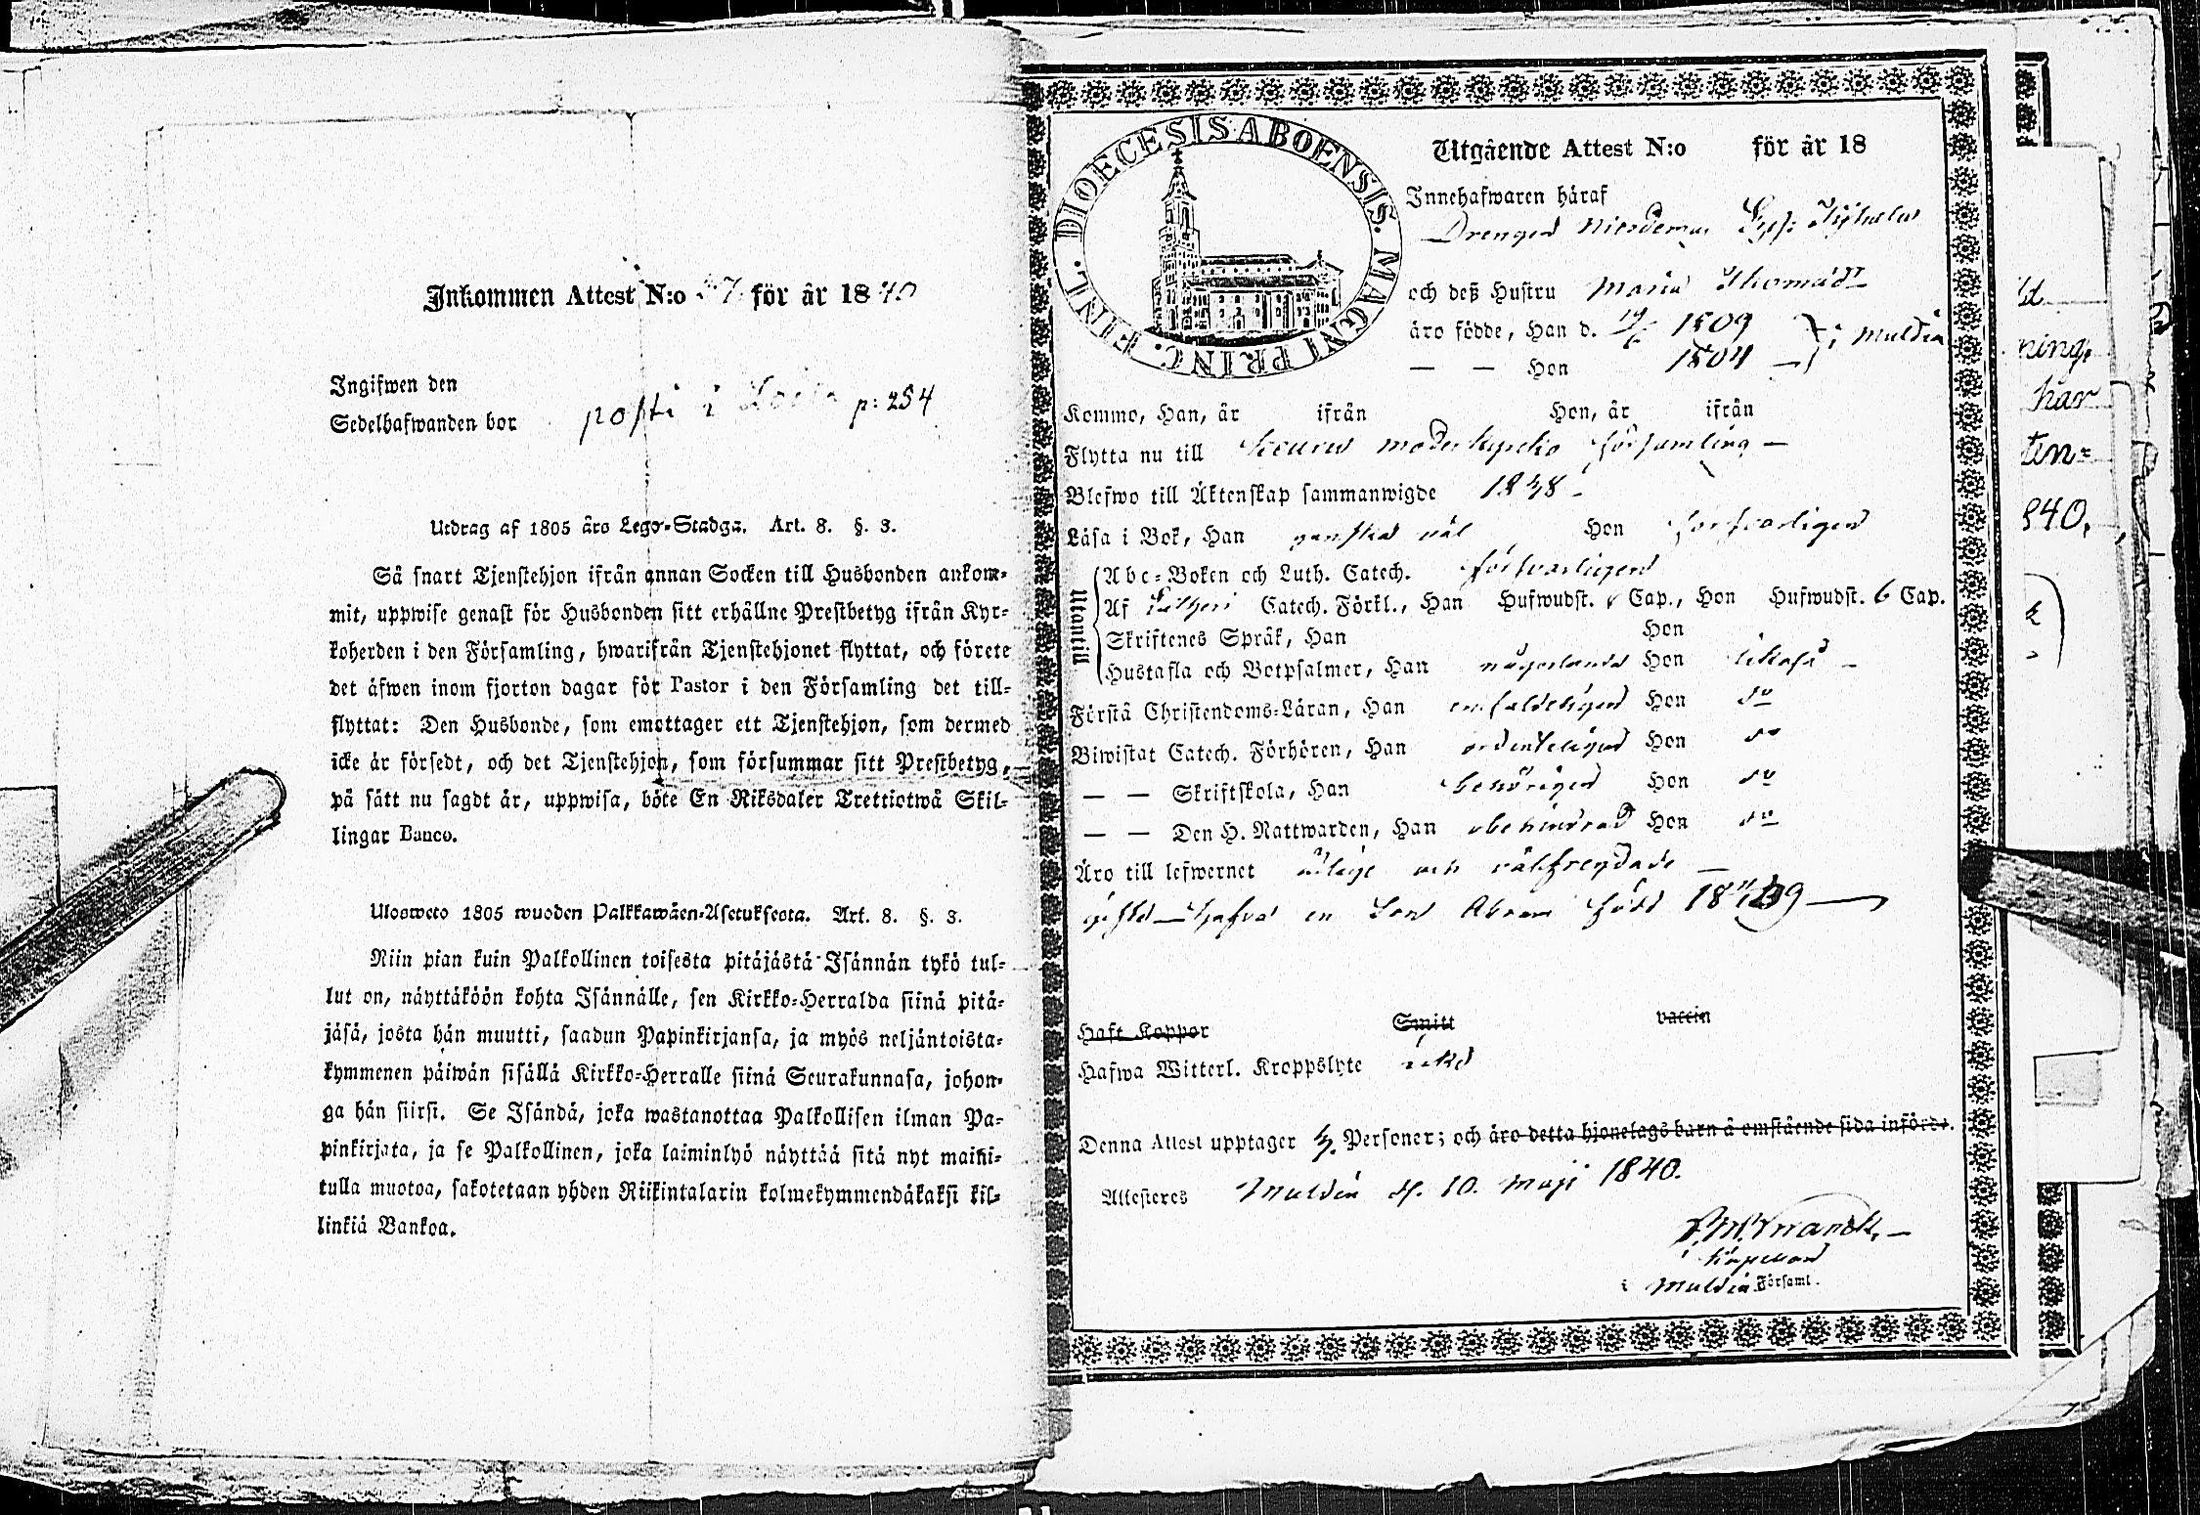 Inkommen Attest N:o 37 för år 1840
Ingifwen den
Sedelhafwanden bor posti i p: 254
Utdrag af 1805 års Lego-Stadga. Art. 8. §. 3.
Så snart Tjenstehjon ifrån annan Socken till Husbonden ankom-
mit, uppwise genast för Husbonden sitt erhållne Prestbetyg ifrån Kyr-
koherden i den Församling, hwarifrån Tjenstehjonet flyttat, och förete
det äfwen inom fjorton dagar för Pastor i den Församling det till-
flyttat: Den Husbonde, som emottager ett Tjenstehjon, som dermed
icke är försedt, och det Tjenstehjon, som försummar sitt Prestbetyg,
på sätt nu sagdt är, uppwisa, böte En Riksdaler Trettiotwå Skil-
lingar Banco.
Ulosweto 1805 wuoden Palkkawäen-Asetuksesta. Art. 8. §. 3.
Niin pian kuin Palkollinen toisesta pitäjästä Isännän tykö tul-
lut on, näyttäköön kohta Isännälle, sen Kirkko-Herralda siinä pitä-
jäsä, josta hän muutti, saadun Papinkirjansa, ja myös neljäntoista-
kymmenen päiwän sisällä Kirkko-Herralle siinä Seurakunnasa, johon-
ga hän siirsi. Se Isändä, joka wastanottaa Palkollisen ilman Pa-
pinkirjata, ja se Palkollinen, joka laiminlyö näyttää sitä nyt maini-
tulla muotoa, sakotetaan yhden Riikintalarin kolmekymmendäkaksi kil-
linkiä Bankoa.
DIOECESIS ABOENSIS. MAGNI PRINC. FINL.
Utgående Attest N:o för år 18
Innehafwaren häraf
Drengen
och deß Hustru Maria Thomasdr
äro födde, Han d. 19/6 1809 } i Muldia
— — Hon 1804 —
Komme, Han, år ifrån Hon, år ifrån
Flytta nu till Keuru moderkyrko församling —
Blefwo till Äktenskap sammanwigde 1838 -
Läsa i Bok, Han ganska väl Hon försvarligen
Utantill
Abc-Boken och Luth. Catech. försvarligen
Af Lutheri Catech. Förkl., Han Hufwudst. 6 Cap., Hon Hufwudst. 6 Cap.
Skriftenes Språk, Han Hon
Hustafla och Botpsalmer, Han någorlunda Hon likaså -
Förstå Christendoms-Läran, Han enfaldeligen Hon do
Biwistat Catech. Förhören, Han ordenteligen Hon do
— — Skriftskola, Han behörigen Hon do
— — Den H. Nattwarden, Han obehindrad Hon do
Äro till lefwernet ärlige och välfrejdade —
hafva en Son Abram född 1839 —
Haft Koppor Smitt vaccin
Hafwa Witterl. Kroppslyte icke
Denna Attest upptager Personer; och äro detta hjonelags barn å omstående sida införde.
Attesteres Muldia d. 10. Maji 1840.
Kapellan
i Muldia Församl.
ning,
har
ten=
840,